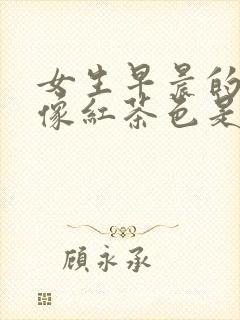 女生早晨的
像紅茶色是
顧永承